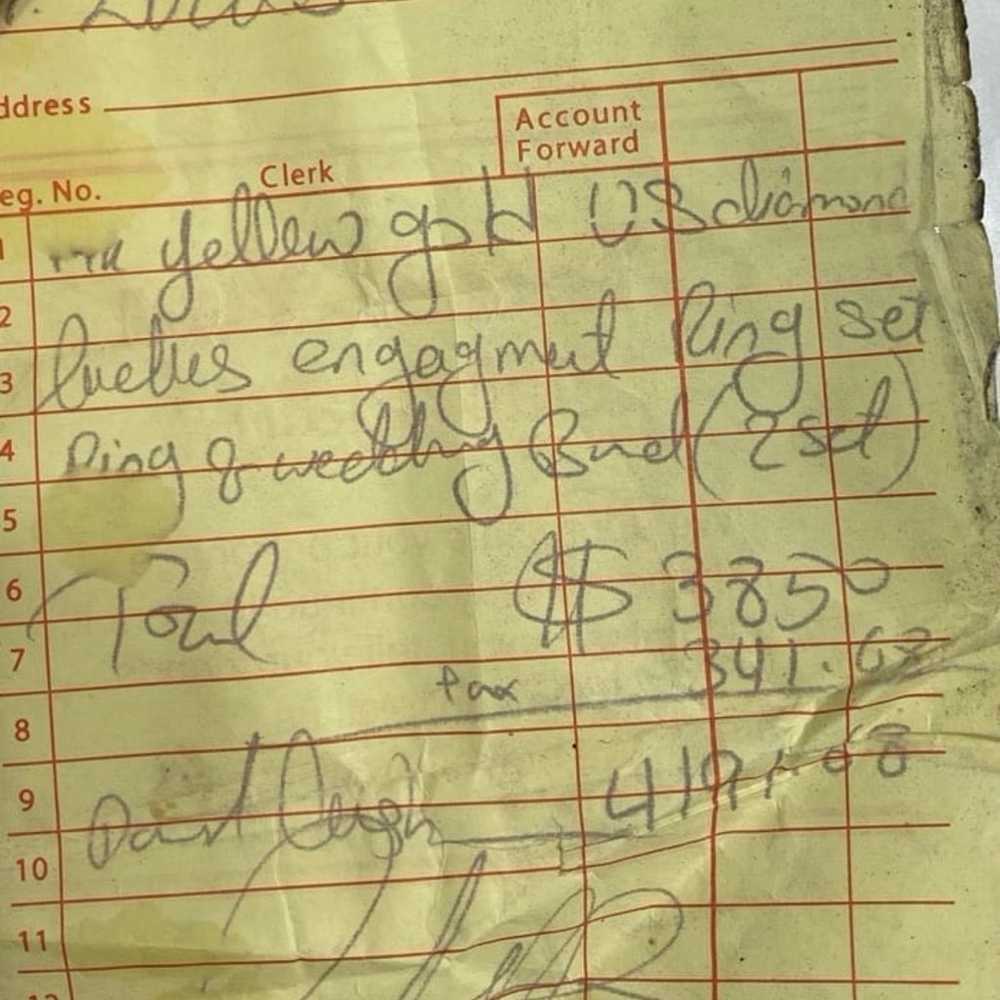 ddress
Account
Forward
eg. No. Clerk
1 yellow gold VS diamond
2
3 engagment Ring set
4 Ring & wedding Band (2 set)
5
6 Total $ 3850
7 tax 341.68
8
9 4191.68
10
11